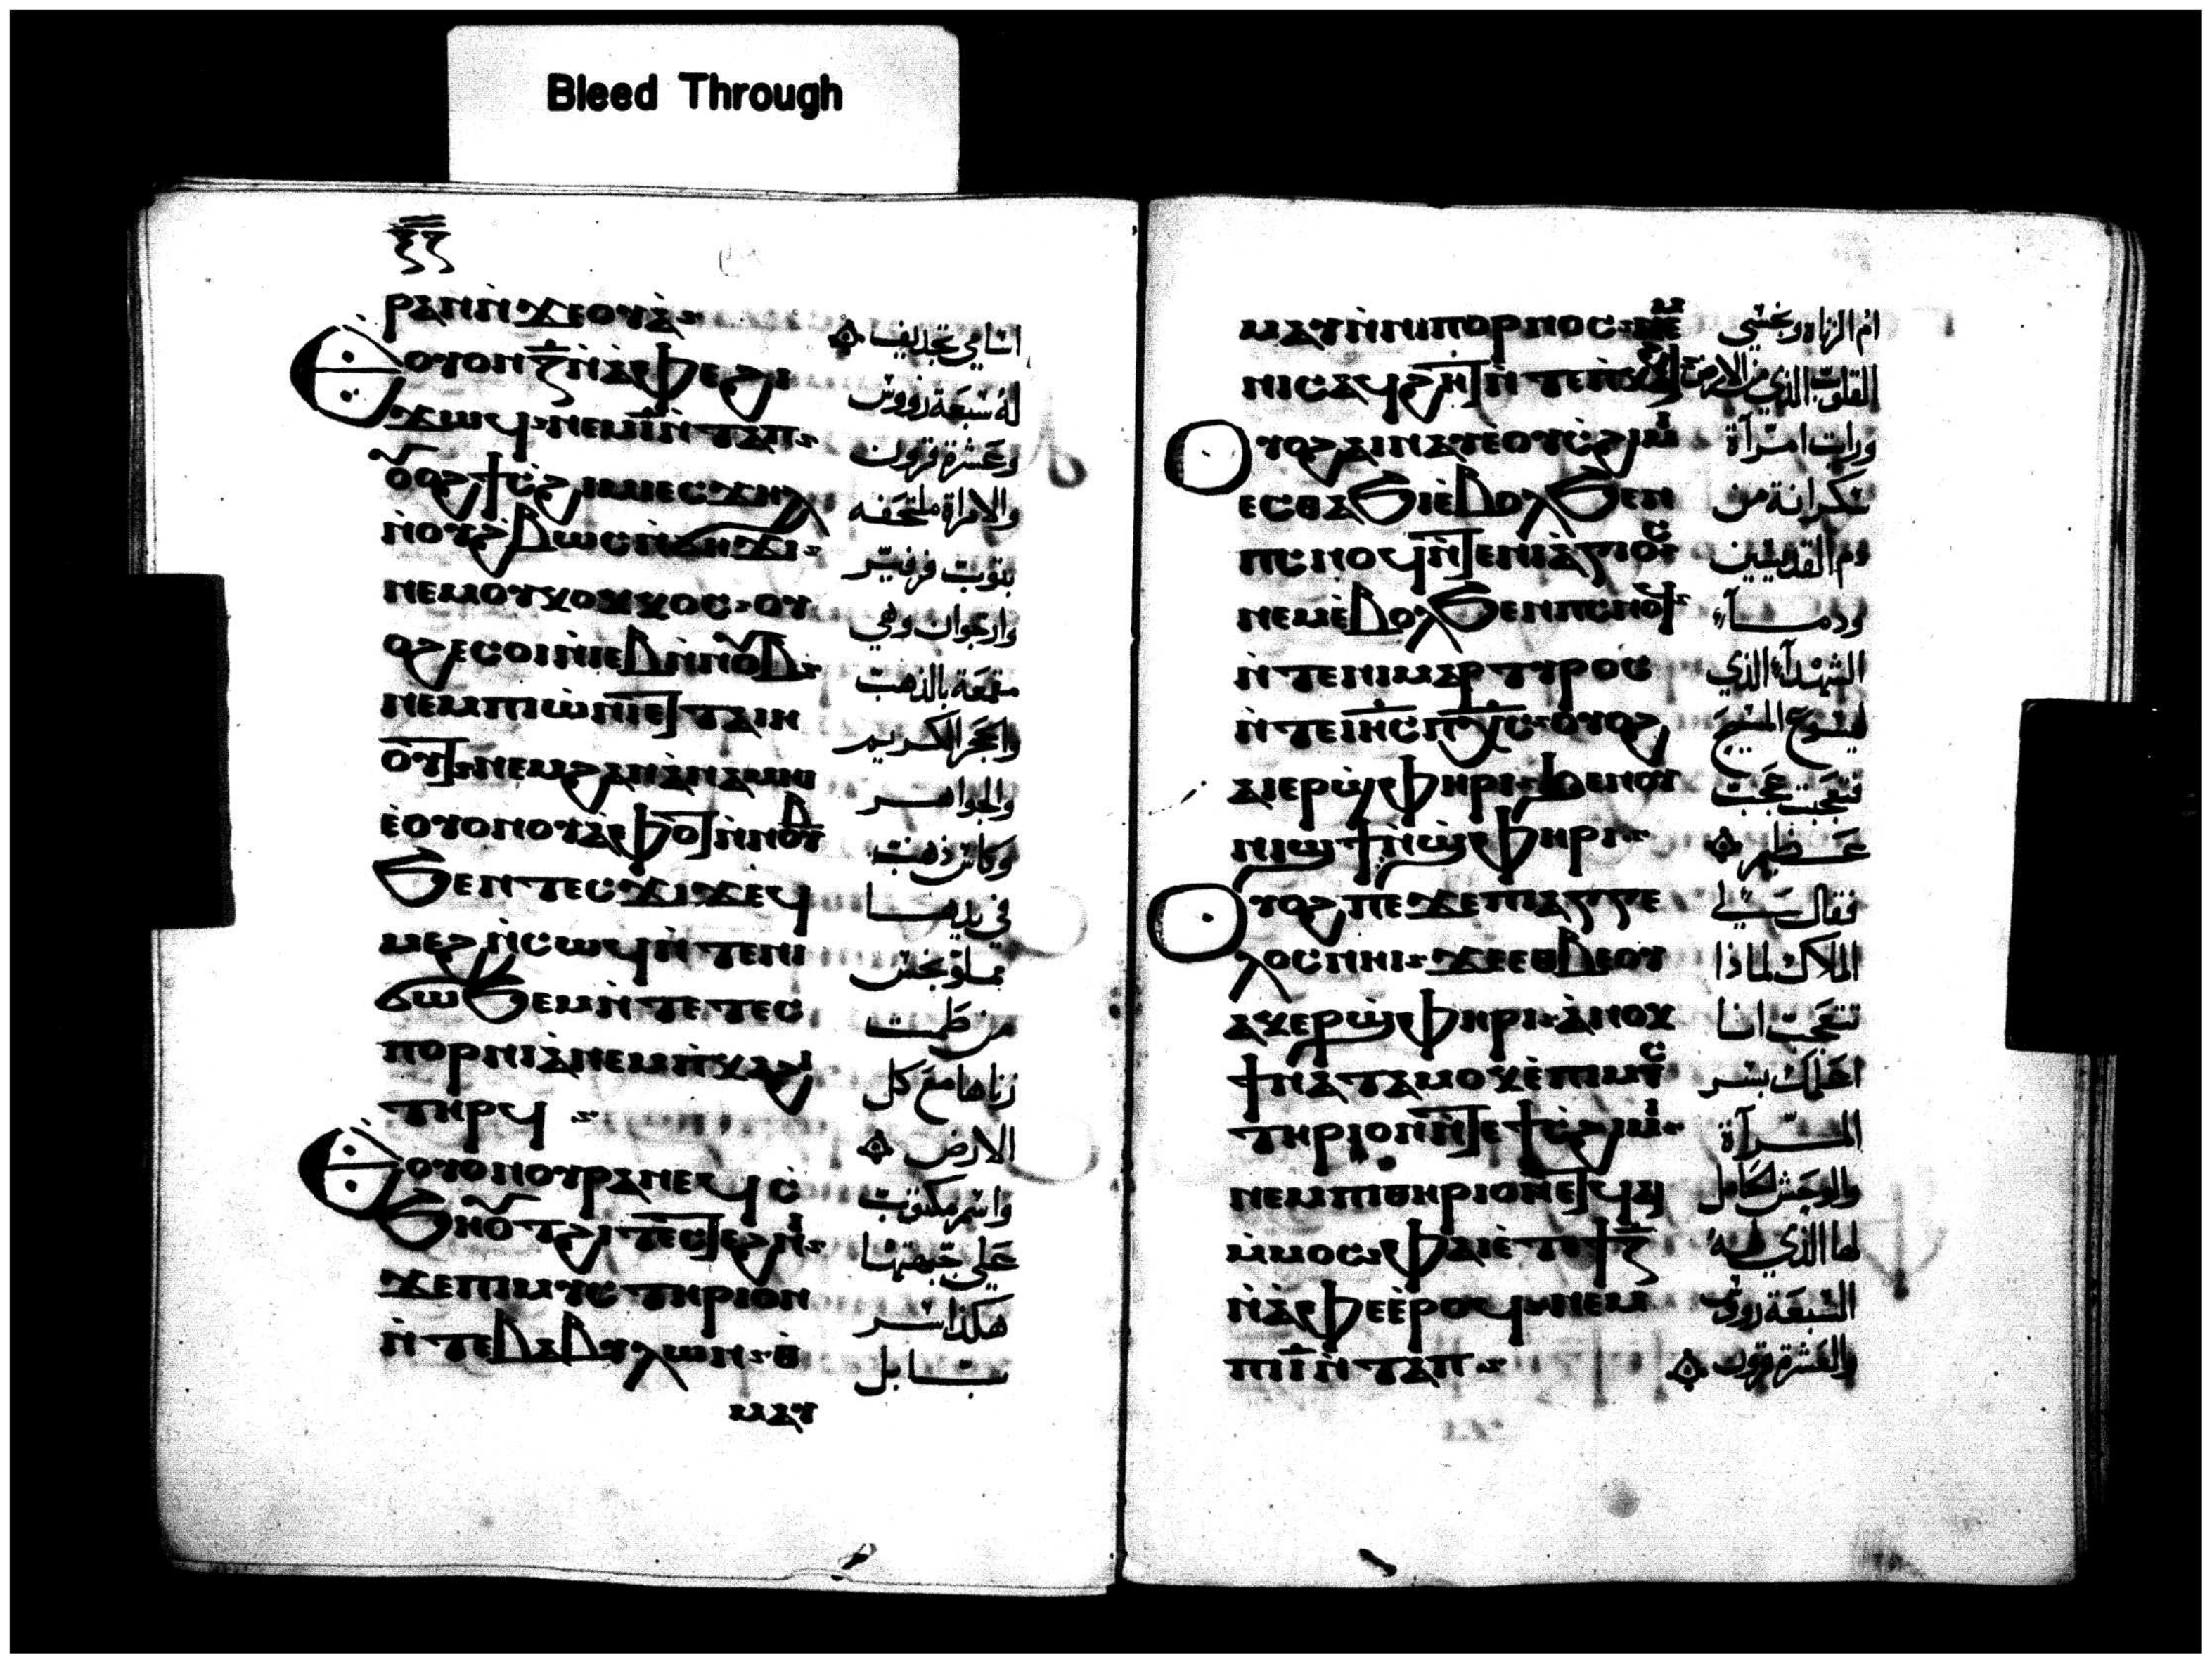 Bleed Through
ⲣⲁⲛ ⲛ̀ϫⲉⲟⲩⲁ̀ اسامي تجديف
ⲉⲟⲩⲟⲛ ⲍ̅ ⲛ̀ⲁ̀ⲫⲉ ϩⲓ له سبعة رووس
ϫⲱϥ ⲛⲉⲙ ⲓ̅ ⲛ̀ⲧⲁⲡ وعشرة قرون
ⲟⲩⲟϩ ϯⲥ̀ϩⲓⲙⲓ ⲉⲥϫⲏⲗ والامراة ملتحفه
ⲛ̀ⲟⲩϩ̀ⲃⲱⲥ ⲛ̀ϭⲏϫⲓ بتوب فرفير
ⲛⲉⲙ ⲟⲩⲕⲟⲕⲕⲟⲥ ⲟⲩ وارجوان وهي
ⲟϩ ⲉⲥⲟⲓ ⲛ̀ⲓⲉⲃ ⲛ̀ⲛⲟⲩⲃ مقمعة بالذهب
ⲛⲉⲙ ⲡⲓⲱ̀ⲛⲓ ⲉⲧⲧⲁⲓⲏ والحجر الكريم
ⲟⲩⲧ ⲛⲉⲙ ϩⲁⲛⲁ̀ⲛⲁⲙⲏⲓ والجواهر
ⲉ̀ⲟⲩⲟⲛ ⲟⲩⲁ̀ⲫⲟⲧ ⲛ̀ⲛⲟⲩⲃ وكاس ذهب
ϧⲉⲛ ⲧⲉⲥϫⲓϫ ⲉϥ في يدها
ⲙⲉϩ ⲛ̀ⲥⲱϥ ⲛ̀ⲧⲉ ⲛⲓ مملو نجس
ϭⲱϧⲉⲙ ⲛ̀ⲧⲉ ⲧⲉⲥ من طمث
ⲡⲟⲣⲛⲓⲁ̀ ⲛⲉⲙ ⲡ̀ⲕⲁϩⲓ زناها مع كل
ⲧⲏⲣϥ الارض
ⲉⲟⲩⲟⲛ ⲟⲩⲣⲁⲛ ⲉϥⲥ̀ واسم مكتوب
ϧⲏⲟⲩⲧ ϩⲓ ⲧⲉⲥⲧⲉϩⲛⲓ على جبهتها
ϫⲉ ⲡⲓⲙⲩⲥⲧⲏⲣⲓⲟⲛ هكذا سر
ⲛ̀ⲧⲉ ⲃⲁⲃⲩⲗⲱⲛ ⲑ̀ بابل
ⲙⲁⲩ
ⲙⲁⲩ ⲛ̀ⲛⲓⲡⲟⲣⲛⲟⲥ ⲛⲉⲙ ام الزناه ونجس
ⲛⲓⲥⲁϥϩⲏⲧ ⲛ̀ⲧⲉ ⲡ̀ⲕⲁϩⲓ القلوب الذي من الارض
ⲟⲩⲟϩ ⲁⲓⲛⲁⲩ ⲉ̀ⲟⲩⲥ̀ϩⲓⲙⲓ ورايت امراة
ⲉⲥⲑⲁϧⲓ ⲉ̀ⲃⲟⲗϧⲉⲛ سكرانة من
ⲡⲥⲛⲟϥ ⲛ̀ⲧⲉ ⲛⲓⲁ̀ⲅⲓⲟⲥ دم القديسين
ⲛⲉⲙ ⲉ̀ⲃⲟⲗϧⲉⲛ ⲡⲥⲛⲟϥ ودماء
ⲛ̀ⲧⲉ ⲛⲓⲙⲁⲣⲧⲩⲣⲟⲥ الشهداء الذي
ⲛ̀ⲧⲉ ⲓⲏⲥ ⲡⲭⲥ ⲟⲩⲟϩ ليسوع المسيح
ⲁⲓⲉⲣϣ̀ⲫⲏⲣⲓ ϧⲉⲛ ⲟⲩ فتعجبت عجب
ⲛⲓϣϯ ⲛ̀ϣ̀ⲫⲏⲣⲓ عظيم
ⲟⲩⲟϩ ⲡⲉϫⲉ ⲡⲓⲁⲅⲅⲉ فقال لي
ⲗⲟⲥ ⲛⲏⲓ ϫⲉ ⲉⲑⲃⲉⲟⲩ الملاك لماذا
ⲁⲕⲉⲣϣ̀ⲫⲏⲣⲓ ⲁ̀ⲛⲟⲕ تعجبت انا
ϯⲛⲁⲧⲁⲙⲟⲕ ⲉ̀ⲡⲓⲙⲩⲥ اعلمك بسر
ⲧⲏⲣⲓⲟⲛ ⲛ̀ⲧⲉ ϯⲥ̀ϩⲓⲙⲓ المراة
ⲛⲉⲙ ⲡⲓⲑⲏⲣⲓⲟⲛ ⲉⲧϥⲁⲓ والوحش الحامل
ⲙ̀ⲙⲟⲥ ⲫⲁⲓ ⲉ̀ⲧⲉ ϯ ⲍ̅ لها الذي له
ⲛ̀ⲁ̀ⲫⲉ ⲉ̀ⲣⲟϥ ⲛⲉⲙ السبعة رووس
ⲡⲓ ⲓ̅ ⲛ̀ⲧⲁⲡ والعشرة قرون